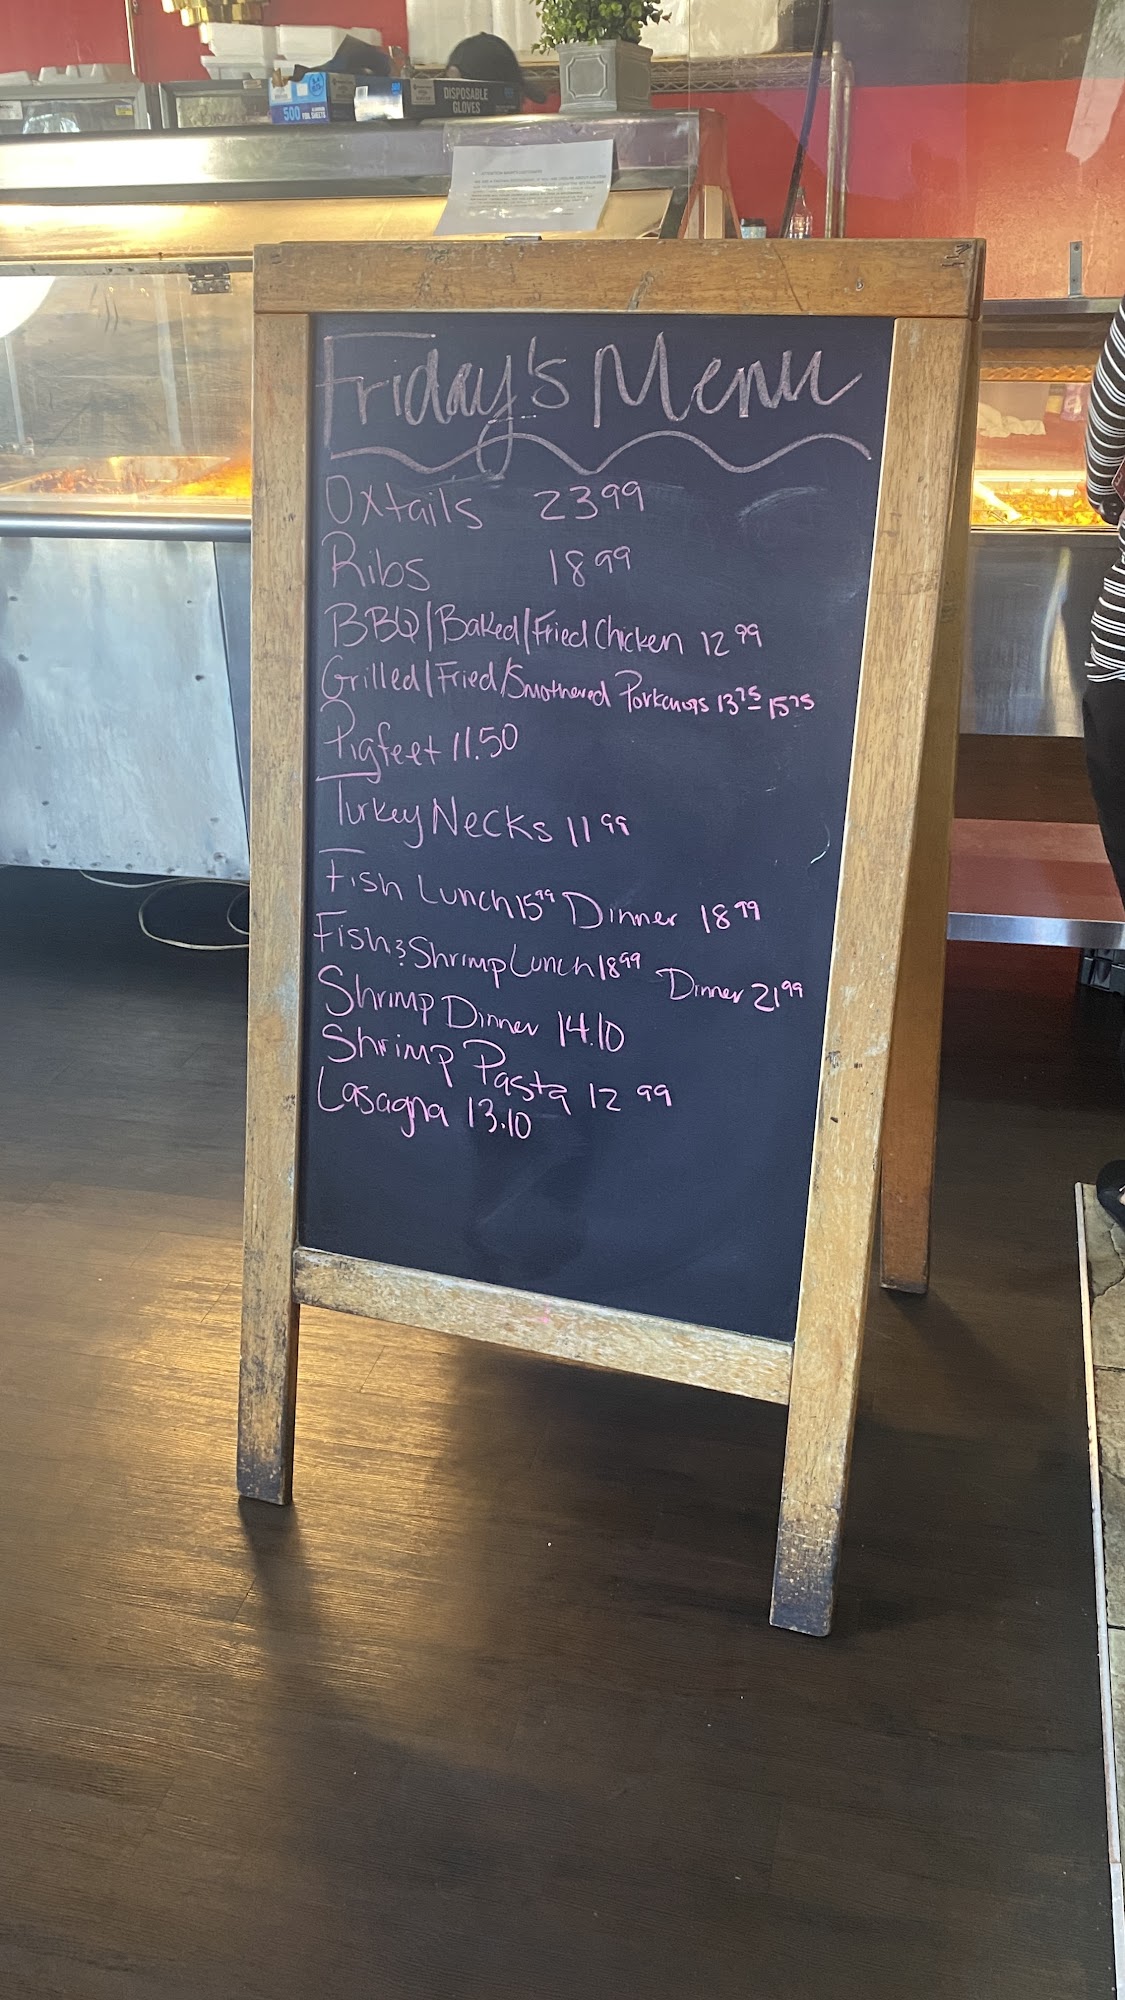 DISPOSABLE
GLOVES
500
FOIL SHEETS
Friday's Menu
Oxtails 23 99
Ribs 18 99
BBQ/Baked/Fried Chicken 12 99
Grilled/Fried/Smothered Porkchops 13 75 - 15 75
Pigfeet 11.50
Turkey Necks 11 99
Fish Lunch 15 99 Dinner 18 99
Fish & Shrimp Lunch 18 99 Dinner 21 99
Shrimp Dinner 14.10
Shrimp Pasta 12 99
Lasagna 13.10